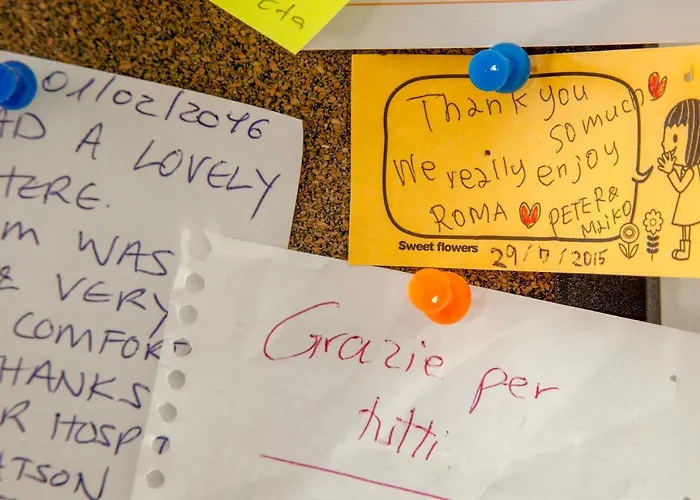 01/02/2046
A LOVELY
HERE.
WAS
& VERY
COMFORT
THANKS
HOSP
Thank you
so much
We really enjoy
ROMA PETER &
MAIKO
Sweet flowers
29/7/2015
Grazie per
tutti